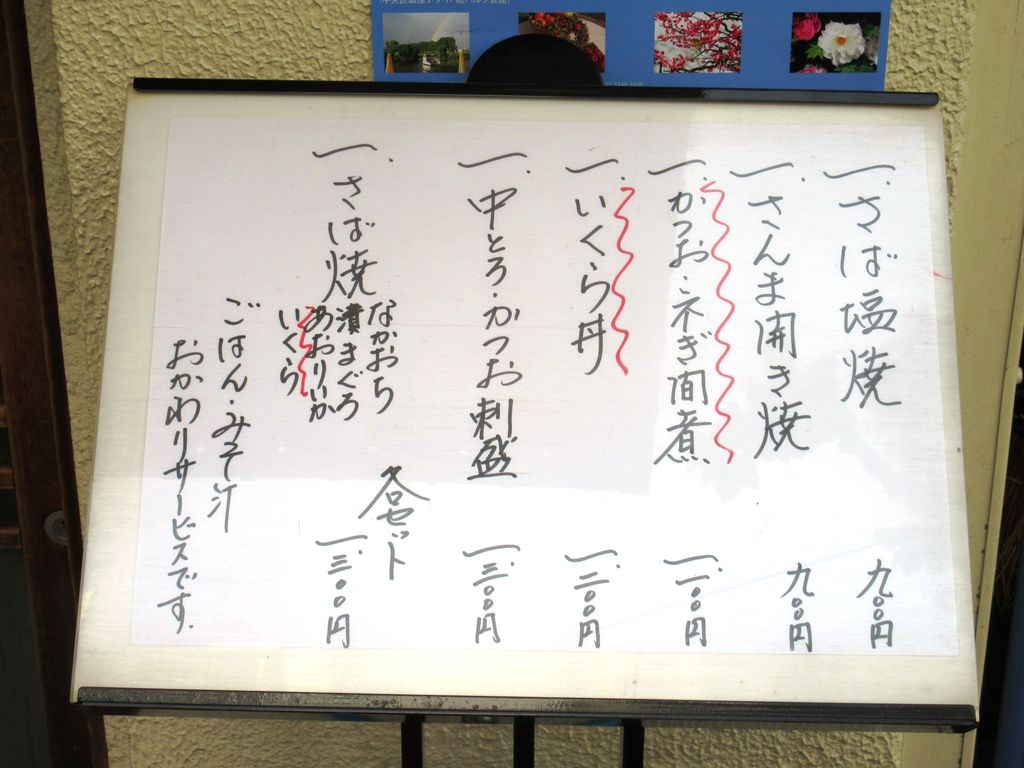 一、さば塩焼 九〇〇円
一、さんま開き焼 九〇〇円
一、かつお・ネぎ間煮 一、一〇〇円
一、いくら丼 一、二〇〇円
一、中とろ・かつお刺盛 一、三〇〇円
一、さば焼 なかおち
漬まぐろ
あおりいか
いくら
各セット 一、三〇〇円
ごはん・みそ汁
おかわりサービスです.